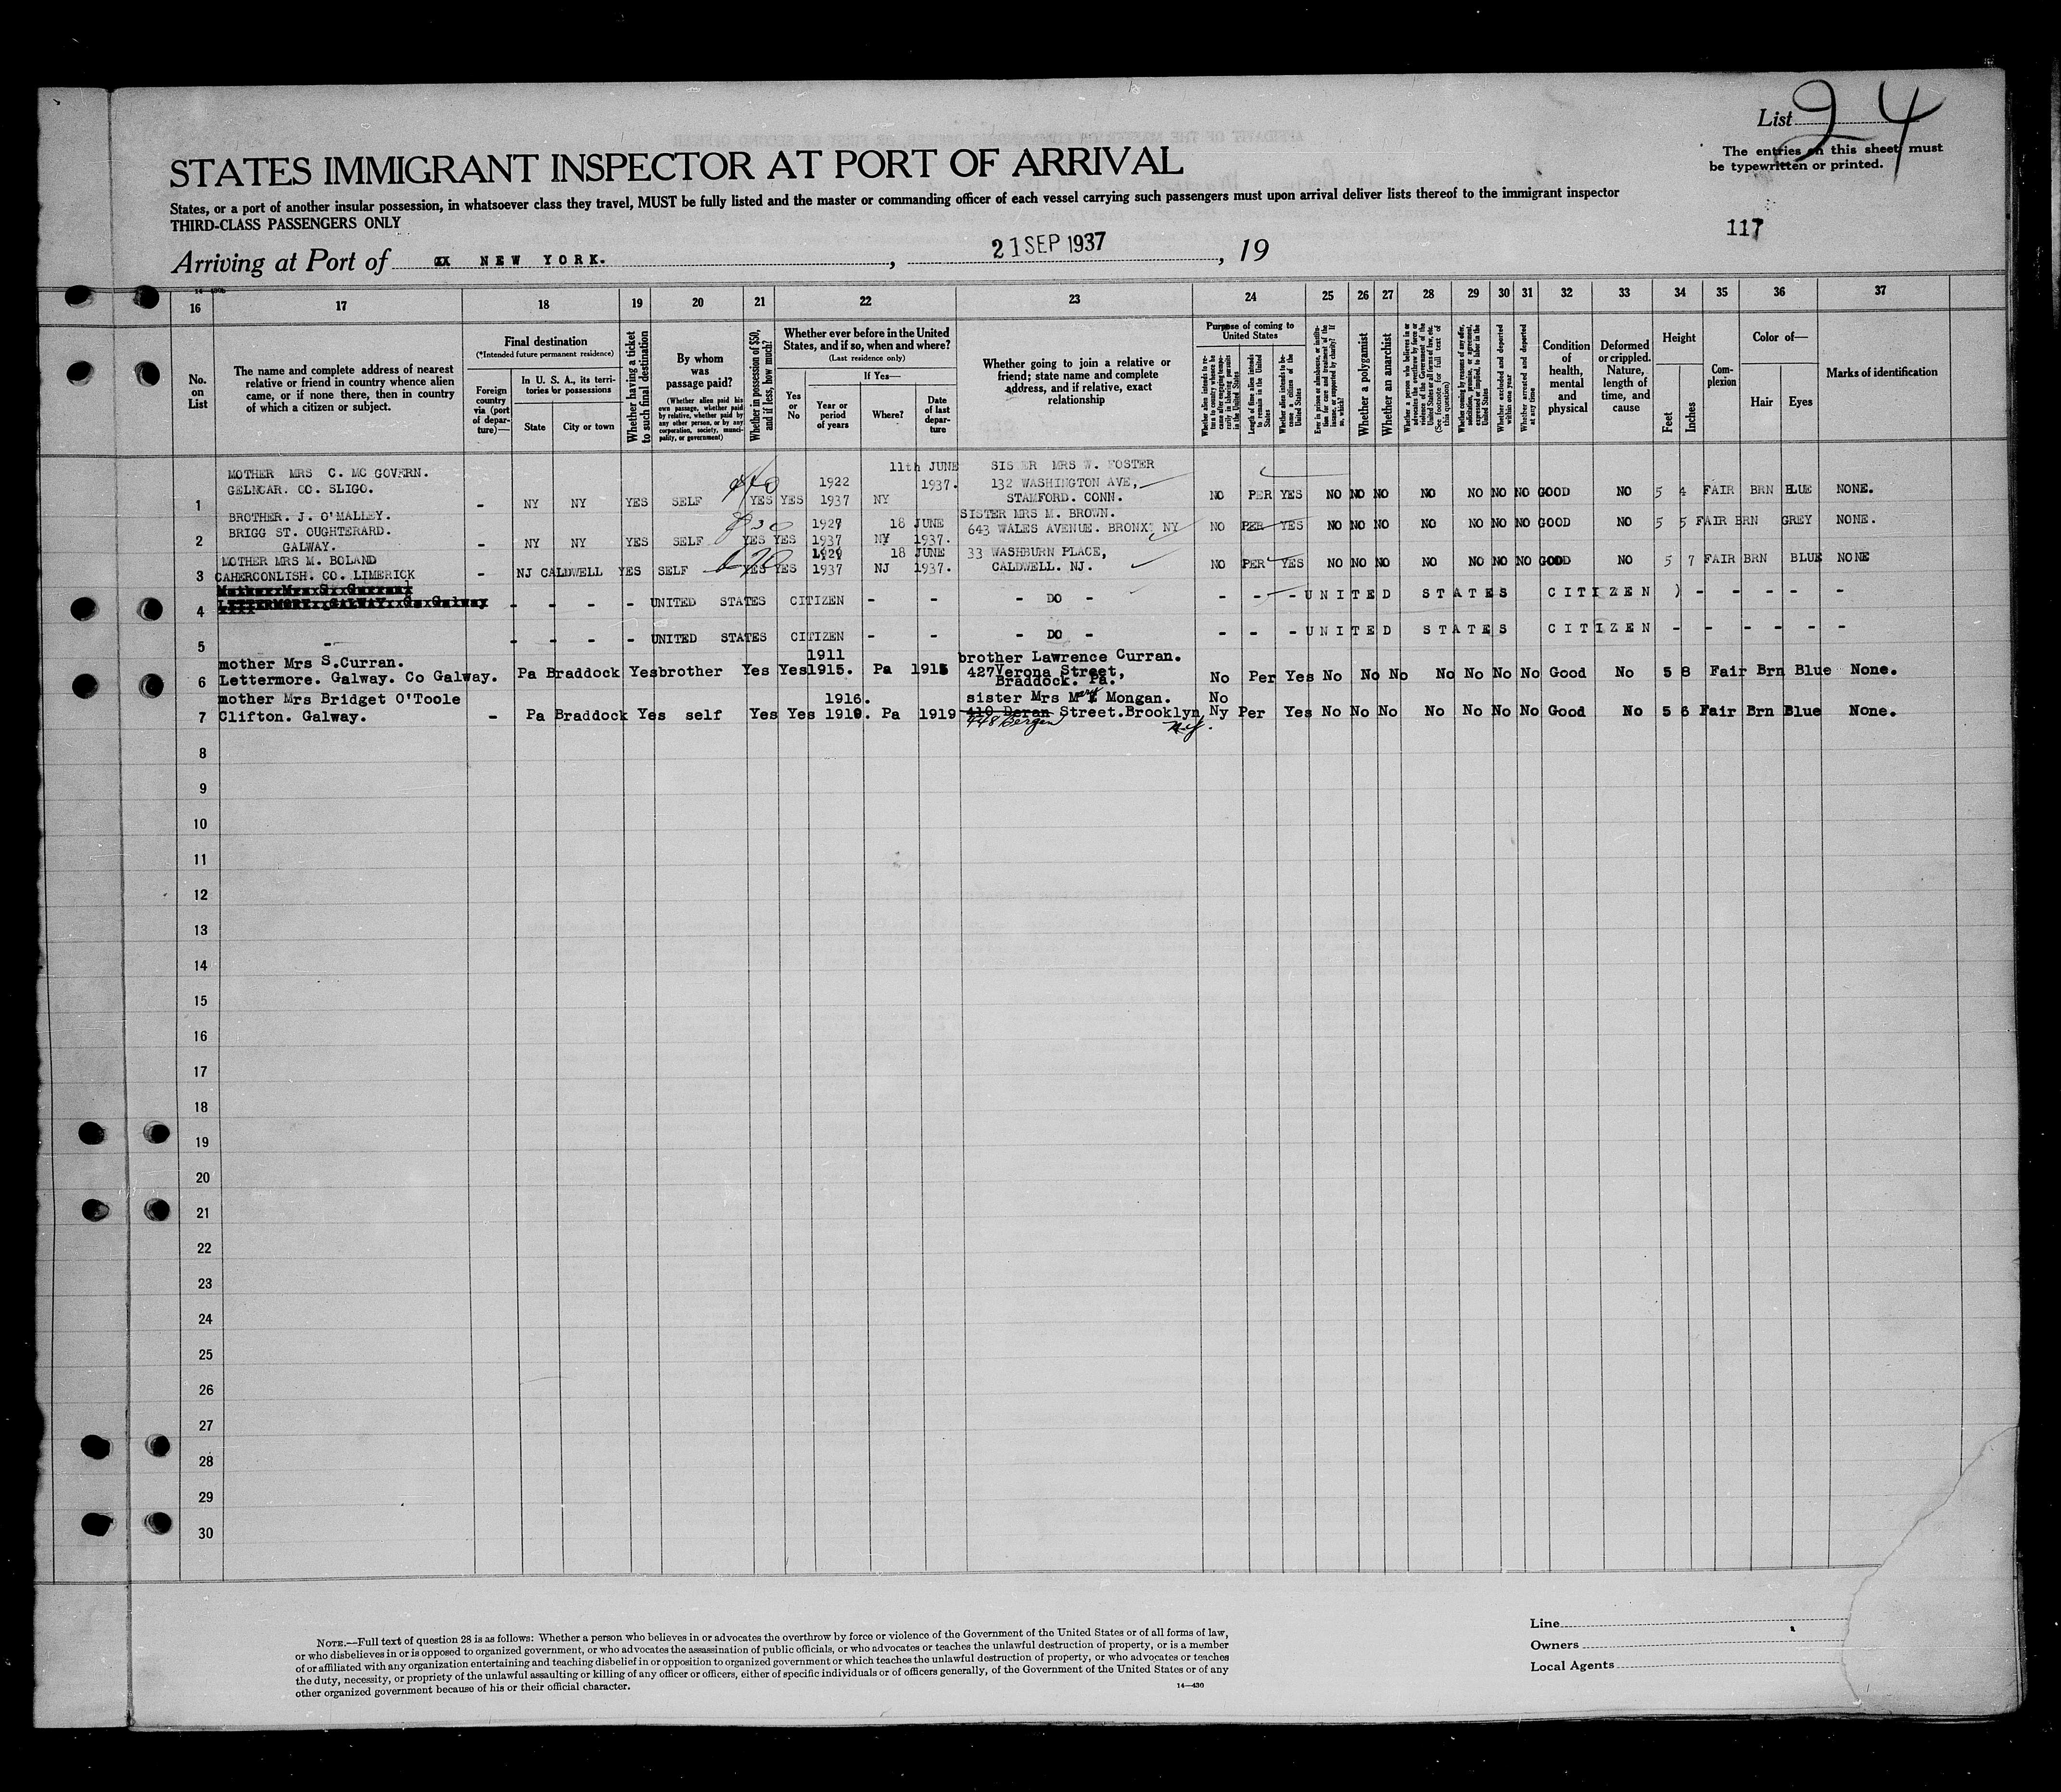 List 24
The entries on this sheet must
be typewritten or printed.
STATES IMMIGRANT INSPECTOR AT PORT OF ARRIVAL
States, or a port of another insular possession, in whatsoever class they travel, MUST be fully listed and the master or commanding officer of each vessel carrying such passengers must upon arrival deliver lists thereof to the immigrant inspector
THIRD-CLASS PASSENGERS ONLY
117
Arriving at Port of NEW YORK. , 21 SEP 1937 , 19
16 17 18 19 20 21 22 23 24 25 26 27 28 29 30 31 32 33 34 35 36 37
No. on List
The name and complete address of nearest
relative or friend in country whence alien
came, or if none there, then in country
of which a citizen or subject.
Final destination
(*Intended future permanent residence)
Foreign country via (port of departure)—
In U. S. A., its territories or possessions
State
City or town
Whether having a ticket to such final destination
By whom was passage paid?
(Whether alien paid his own passage, whether paid by relative, whether paid by any other person, or by any corporation, society, municipality, or government)
Whether in possession of $50, and if less, how much?
Whether ever before in the United States, and if so, when and where?
(Last residence only)
Yes or No
If Yes—
Year or period of years
Where?
Date of last departure
Whether going to join a relative or
friend; state name and complete
address, and if relative, exact
relationship
Purpose of coming to United States
Whether alien intends to return to country whence he came after engaging temporarily in laboring pursuits in the United States
Length of time alien intends to remain in the United States
Whether alien intends to become a citizen of the United States
Ever in prison or almshouse, or institution for care and treatment of the insane, or supported by charity? If so, which?
Whether a polygamist
Whether an anarchist
Whether a person who believes in or advocates the overthrow by force or violence of the Government of the United States or all forms of law, etc. (See footnote for full text of this question)
Whether coming by reason of any offer, solicitation, promise, or agreement, expressed or implied, to labor in the United States
Whether excluded and deported within one year
Whether arrested and deported at any time
Condition of health, mental and physical
Deformed or crippled. Nature, length of time, and cause
Height
Feet
Inches
Complexion
Color of—
Hair
Eyes
Marks of identification
MOTHER MRS C. MC GOVERN. 11th JUNE SISTER MRS W. FOSTER
GELNCAR. CO. SLIGO. 1922 1937. 132 WASHINGTON AVE,
1 - NY NY YES SELF YES YES 1937 NY STAMFORD. CONN. NO PER YES NO NO NO NO NO NO NO GOOD NO 5 4 FAIR BRN BLUE NONE.
BROTHER. J. O'MALLEY. SISTER MRS M. BROWN.
BRIGG ST. OUGHTERARD. 1927 18 JUNE 643 WALES AVENUE. BRONX NY NO PER YES NO NO NO NO NO NO NO GOOD NO 5 5 FAIR BRN GREY NONE.
2 GALWAY. - NY NY YES SELF YES YES 1937 NY 1937.
MOTHER MRS M. BOLAND 1929 18 JUNE 33 WASHBURN PLACE,
3 CAHERCONLISH. CO. LIMERICK - NJ CALDWELL YES SELF YES YES 1937 NJ 1937. CALDWELL. NJ. NO PER YES NO NO NO NO NO NO NO GOOD NO 5 7 FAIR BRN BLUE NONE
4 - - - - UNITED STATES CITIZEN - - - DO - - - - UNITED STATES CITIZEN ) - - - - -
5 - - - - - UNITED STATES CITIZEN - - - DO - - - - UNITED STATES CITIZEN - - - - - -
mother Mrs S.Curran. 1911 brother Lawrence Curran.
6 Lettermore. Galway. Co Galway. Pa Braddock Yes brother Yes Yes 1915. Pa 1915 427 Verona Street,
Braddock. Pa. No Per Yes No No No No No No No Good No 5 8 Fair Brn Blue None.
mother Mrs Bridget O'Toole 1916. sister Mrs Mary Mongan. No
7 Clifton. Galway. - Pa Braddock Yes self Yes Yes 1919. Pa 1919 Street. Brooklyn Ny Per Yes No No No No No No No Good No 5 6 Fair Brn Blue None.
448 Bergen
8
9
10
11
12
13
14
15
16
17
18
19
20
21
22
23
24
25
26
27
28
29
30
NOTE.—Full text of question 28 is as follows: Whether a person who believes in or advocates the overthrow by force or violence of the Government of the United States or of all forms of law,
or who disbelieves in or is opposed to organized government, or who advocates the assassination of public officials, or who advocates or teaches the unlawful destruction of property, or is a member
of or affiliated with any organization entertaining and teaching disbelief in or opposition to organized government or which teaches the unlawful destruction of property, or who advocates or teaches
the duty, necessity, or propriety of the unlawful assaulting or killing of any officer or officers, either of specific individuals or of officers generally, of the Government of the United States or of any
other organized government because of his or their official character.
14—430
Line
Owners
Local Agents